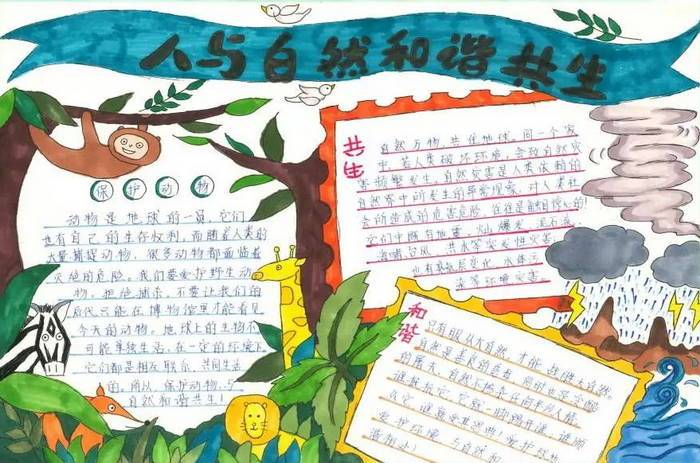 人与自然和谐共生
保护动物
动物是地球的一员，它们
也有自己的生存权利，而随着人类的
大量捕捉动物，很多动物都面临着
灭绝的危险。我们要爱护野生动
物，拒绝捕杀，不要让我们的
后代只能在博物馆里才能看见
今天的动物。地球上的生物不
可能单独生活，在一定的环境下
它们都是相互联系、共同生活
的，所以，保护动物，与
自然和谐共生！
共生
自然万物，共住地球，同一个家
中，若人类破坏环境，会致自然灾
害频繁发生，自然灾害是人类依赖的
自然界中所发生的异常现象，对人类社
会所造成的危害往往是触目惊心的！
它们中既有地震、火山爆发、泥石流、
海啸、台风、洪水等突发性灾害，
也有臭氧层变化、水体污
染等环境灾害。
和谐
只有服从大自然，才能战胜大自然。
自然是善良的慈母，同时也是冷酷
的屠夫。
爱护环境，与自然和
谐相